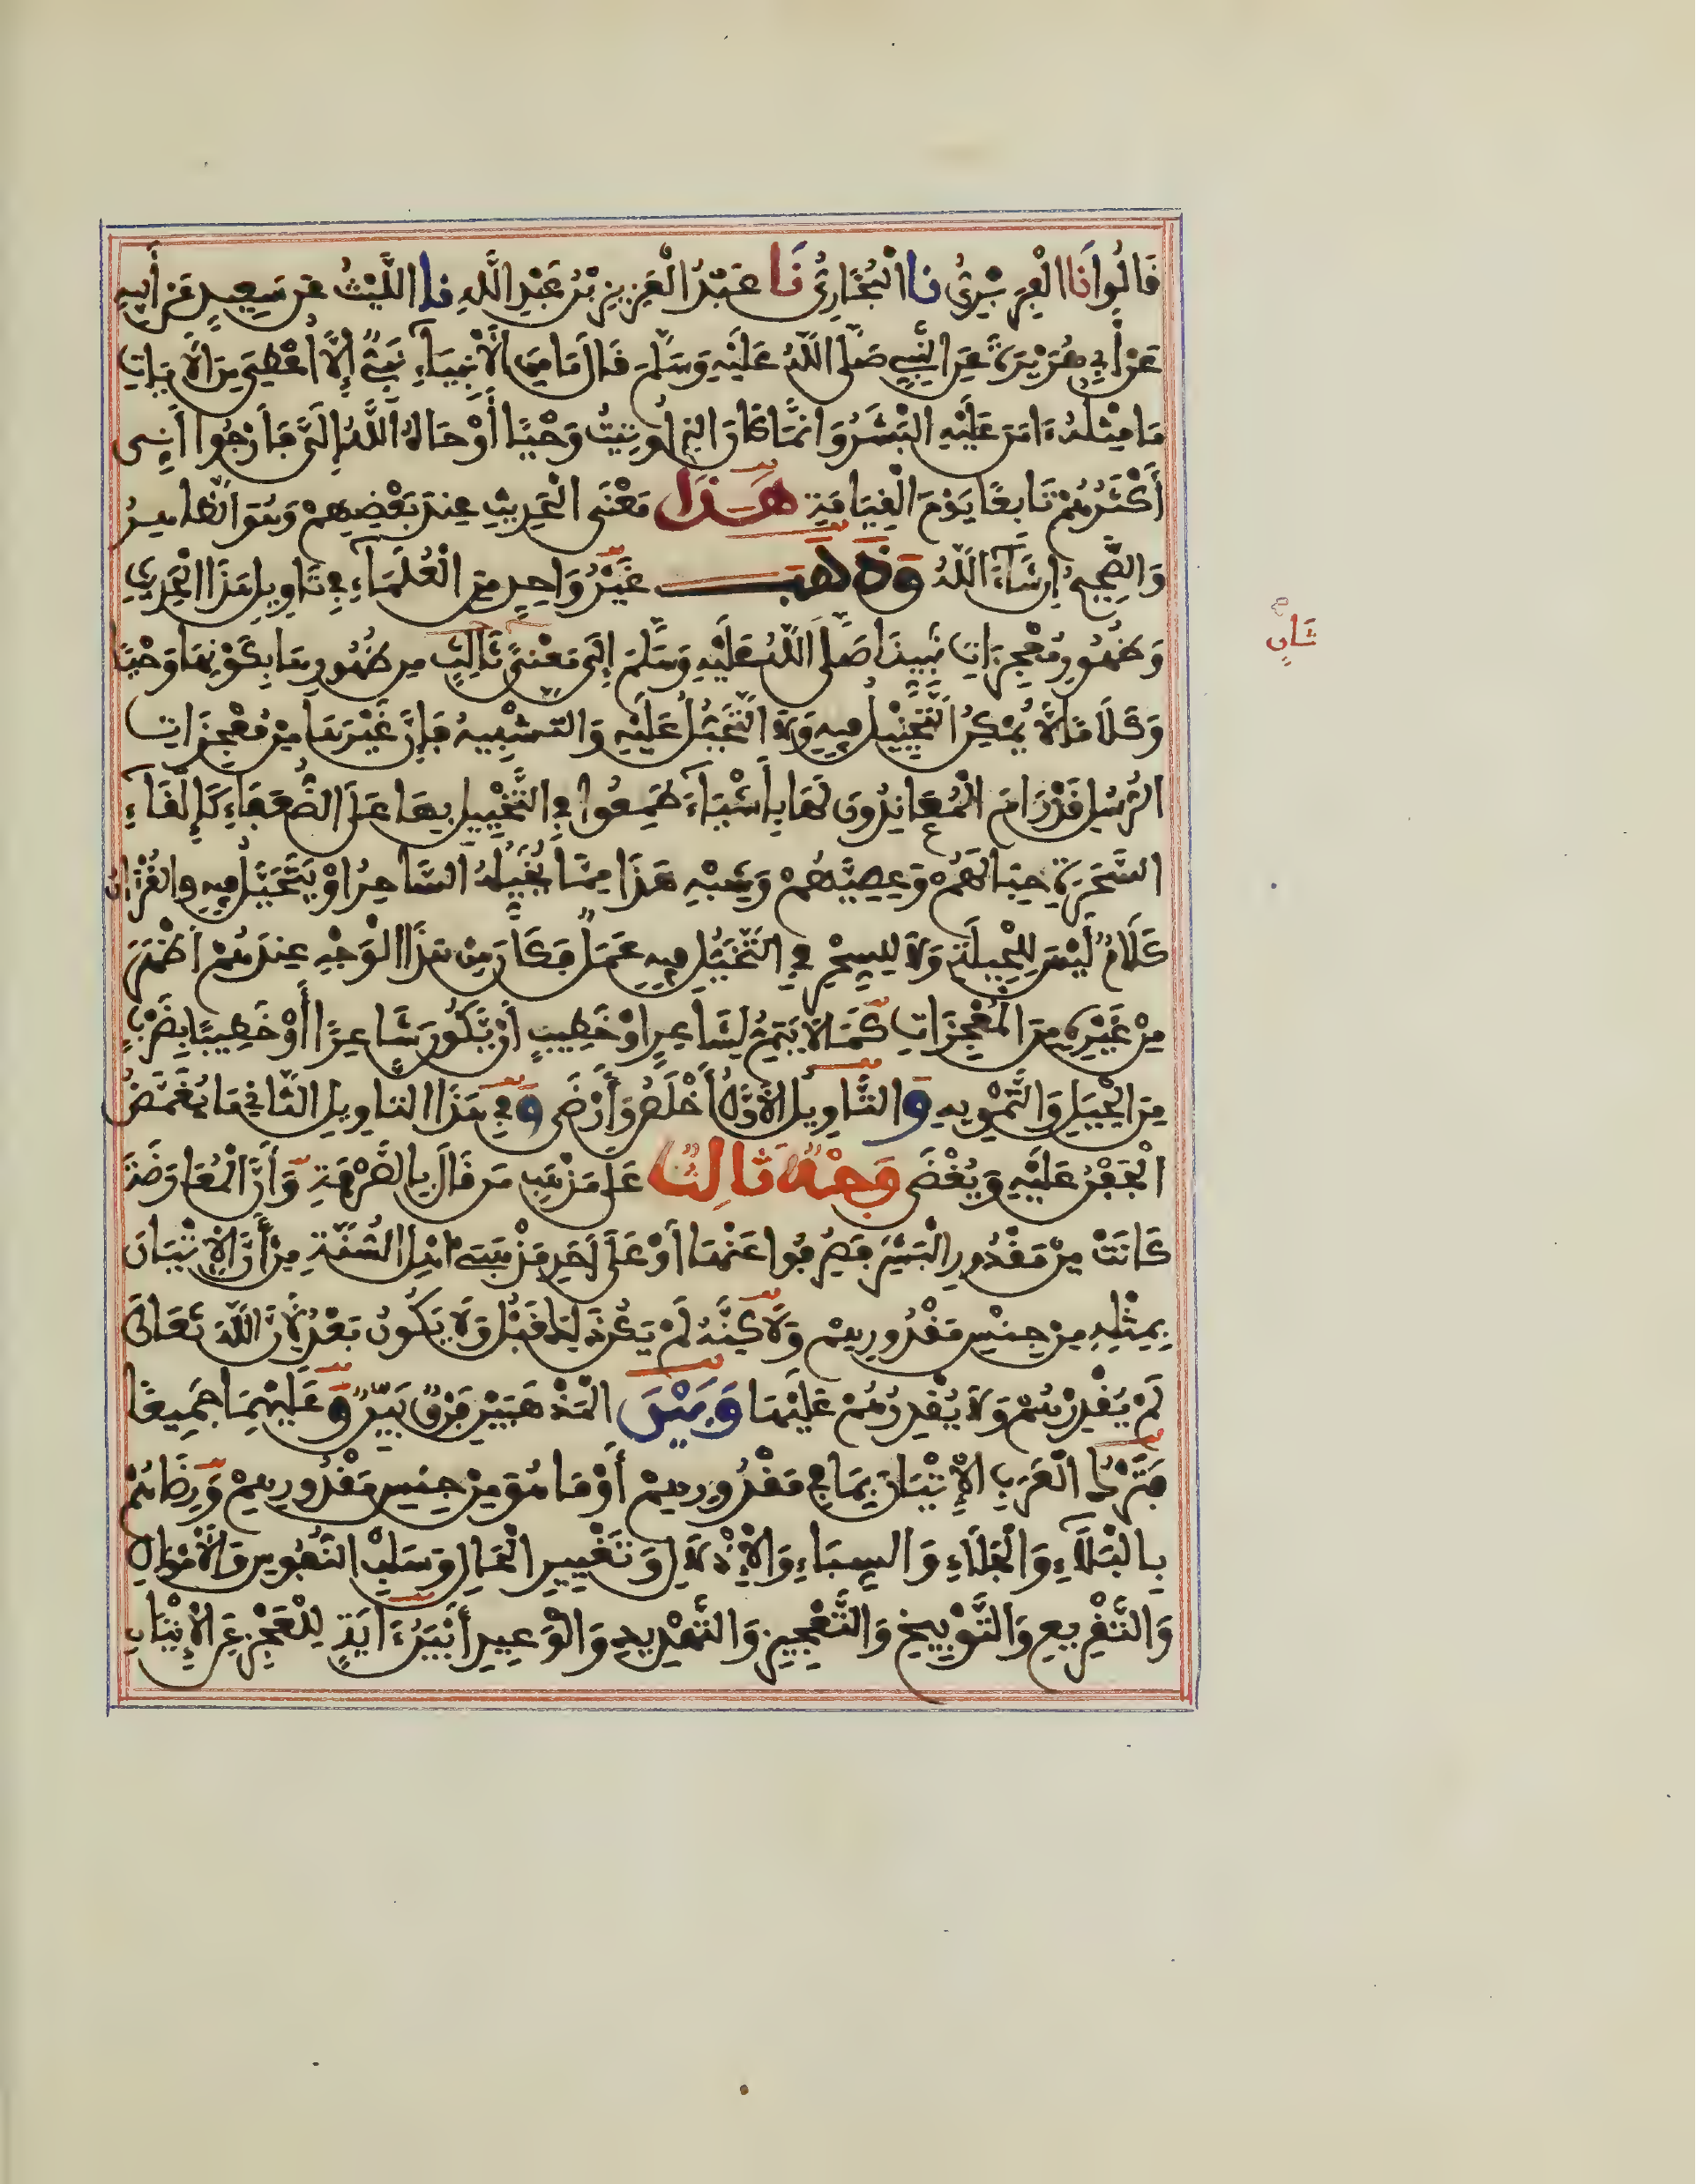 قَالُوا نَا الْفِرَبْرِيُّ نَا الْبُخَارِيُّ نَا عَبْدُ الْعَزِيزِ بْنُ عَبْدِ اللَّهِ نا اللَّيْثُ عَن سَعِيدٍ عَنْ أَبِيهِ
عَنْ أَبِي هُرَيْرَةَ عَنِ النَّبِيِّ صَلَّى اللَّهُ عَلَيْهِ وَسَلَّمَ قَالَ مَا مِنَ الْأَنْبِيَاءِ نَبِيٌّ إِلَّا أُعْطِيَ مِنَ الْآيَاتِ
مَا مِثْلُهُ ءَامَنَ عَلَيْهِ الْبَشَرُ وَإِنَّمَا كَانَ الذِي أُوتِيتُ وَحْيًا أَوْحَاهُ اللَّهُ إِلَيَّ فَأَرْجُوا أَنِّي
أَكْثَرُهُمْ تَابِعًا يَوْمَ الْقِيَامَةِ هَذَا مَعْنَى الْحَدِيثِ عِندَ بَعْضِهِمْ وَهُوَ الظَّاهِرُ
وَالصَّحِيحُ إِن شَاءَ اللَّهُ وَذَهَبَ غَيْرُ وَاحِدٍ مِنَ الْعُلَمَاءِ فِي تَاوِيلِ هَذَا الْحَدِيثِ
وَظُهُورِ مُعْجِزَاتِ نَبِيِّنَا صَلَّى اللَّهُ عَلَيْهِ وَسَلَّمَ إِلَى مَعْنًى ثَالِثٍ مِن ظُهُورِهَا بِكَوْنِهَا وَحْيًا
وَكَلَامًا لَّا يُمْكِنُ التَّخْيِيلُ فِيهِ وَلَا التَّحَيُّلُ عَلَيْهِ وَالتَّشْبِيهُ فَإِنَّ غَيْرَهَا مِنْ مُعْجِزَاتِ
الرُّسُلِ قَدْ رَامَ الْمُعَانِدُونَ لَهَا بِأَشْيَاءَ طَمِعُوا فِي التَّخْيِيلِ بِهَا عَلَى الضُّعَفَاءِ كَإِلْقَاءِ
السَّحَرَةِ حِبَالَهُمْ وَعِصِيَّهُمْ وَشِبْهِ هَذَا مِمَّا يُخَيِّلُهُ السَّاحِرُ أَوْ يَتَحَيَّلُ فِيهِ وَالْقُرْءَانُ
كَلَامٌ لَيْسَ لِلْحِيلَةِ وَلَا لِلسِّحْرِ فِي التَّخَيُّلِ فِيهِ عَمَلٌ فَكَانَ مِنْ هَذَا الْوَجْهِ عِندَهُمْ أَظْهَرَ
مِنْ غَيْرِهِ مِنَ الْمُعْجِزَاتِ كَمَا لَا يَتِمُّ لِشَاعِرٍ أَوْ خَطِيبٍ أَن يَّكُونَ شَاعِرًا أَوْ خَطِيبًا بِضَرْبٍ
مِنَ الْحِيَلِ وَالتَّمْوِيهِ وَالتَّاوِيلُ الْأَوَّلُ أَخْلَصُ وَأَرْضَى وَفِي هَذَا التَّاوِيلِ الثَّانِي مَا يُغَمَّضُ
الْجَفْنُ عَلَيْهِ وَيُغْضَى وَجْهٌ ثَالِثٌ عَلَى مَذْهَبِ مَن قَالَ بِالصَّرْفَةِ وَأَنَّ الْمُعَارَضَةَ
كَانَتْ مِنْ مَقْدُورِ الْبَشَرِ فَصُرِفُوا عَنْهَا أَوْ عَلَى أَحَدِ مَذْهَبَيْ أَهْلِ السُّنَّةِ مِنْ أَنَّ الْإِتْيَانَ
بِمِثْلِهِ مِنْ جِنْسِ مَقْدُورِهِمْ وَلَاكِنَّهُ لَمْ يَكُن ذَلِكَ قَبْلُ وَلَا يَكُونُ بَعْدُ لِأَنَّ اللَّهَ تَعَالَى
لَمْ يُقْدِرْهُمْ وَلَا يُقْدِرُهُمْ عَلَيْهَا وَبَيْنَ الْمَذْهَبَيْنِ فَرْقٌ بَيِّنٌ وَعَلَيْهِمَا جَمِيعًا
فَتَرْكُ الْعَرَبِ الْإِتْيَانَ بِمَا فِي مَقْدُورِهِمْ أَوْ مَا هُوَ مِنْ جِنسِ مَقْدُورِهِمْ وَرِضَاهُمْ
بِالْبَلَاءِ وَالْجَلَاءِ وَالسِّبَاءِ وَالْإِذْلَالِ وَتَغْيِيرِ الْحَالِ وَسَلْبِ النُّفُوسِ وَالْأَمْوَالِ
وَالتَّقْرِيعِ وَالتَّوْبِيخِ وَالتَّعْجِيزِ وَالتَّهْدِيدِ وَالْوَعِيدِ أَبْيَنُ ءَايَةٍ لِلْعَجْزِ عَنِ الْإِتْيَانِ